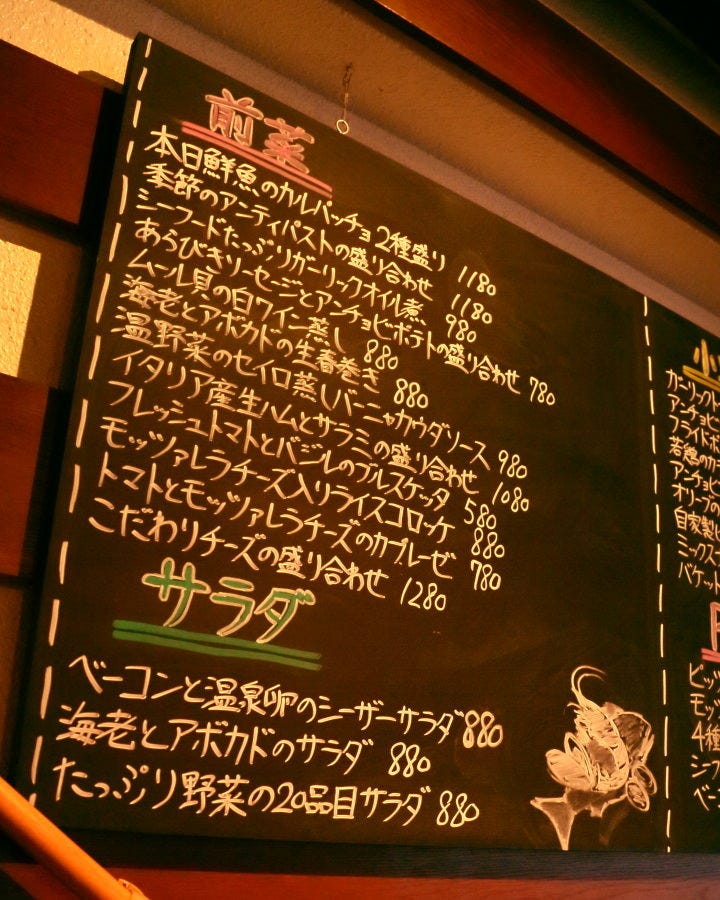 前菜
本日鮮魚のカルパッチョ2種盛り 1180
季節のアンティパストの盛り合わせ 1180
シーフードたっぷりガーリックオイル煮 980
あらびきソーセージとアンチョビポテトの盛り合わせ 780
ムール貝の白ワイン蒸し 880
海老とアボカドの生春巻き 880
温野菜のセイロ蒸しバーニャカウダソース 980
イタリア産生ハムとサラミの盛り合わせ 1080
フレッシュトマトとバジルのブルスケッタ 580
モッツァレラチーズ入りライスコロッケ 880
トマトとモッツァレラチーズのカプレーゼ 780
こだわりチーズの盛り合わせ 1280
サラダ
ベーコンと温泉卵のシーザーサラダ 880
海老とアボカドのサラダ 880
たっぷり野菜の20品目サラダ 880
小
ガーリックト
アンチョビ
フライドポ
若鶏のカ
アンチョビ
オリーブの
自家製ピ
ミックス
バケット
ピッツ
モッツ
4種
シーフ
ベー